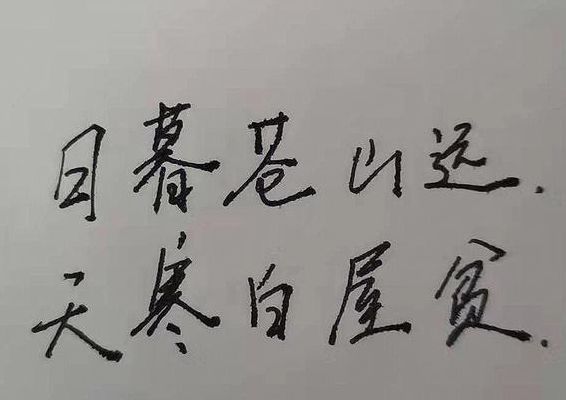 日暮苍山远.
天寒白屋贫.